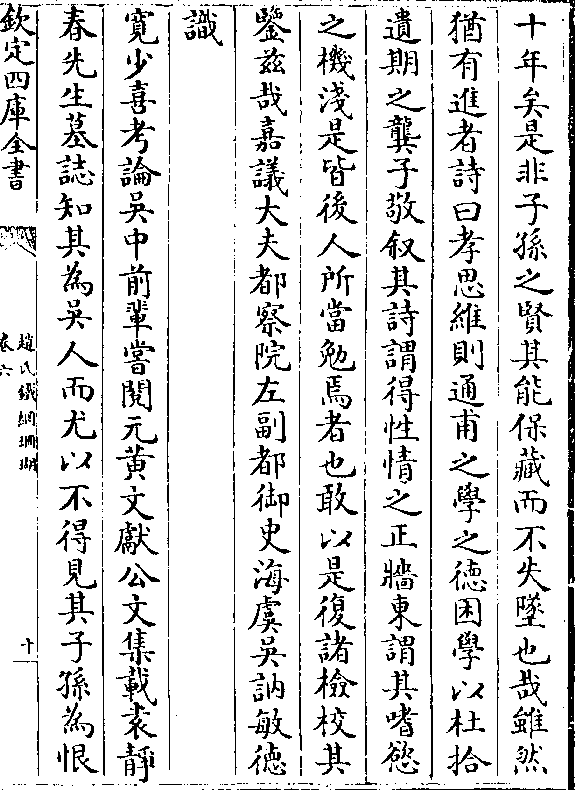 十年矣是非子孫之賢其能保藏而不失墜也哉雖然
猶有進者詩曰孝思維則通甫之學之徳困學以杜拾
遺期之龔子敬叙其詩謂得性情之正牆東謂其嗜慾
之機淺是皆後人所當勉焉者也敢以是復諸檢校其
鑒兹哉嘉議大夫都察院左副都御史海虞吳訥敏德
識
寛少喜考論吳中前輩嘗閱元黄文獻公文集載袁靜
春先生墓誌知其為吳人而尤以不得見其子孫為恨
欽定四庫全書
趙氏鐵網珊瑚
卷六
十